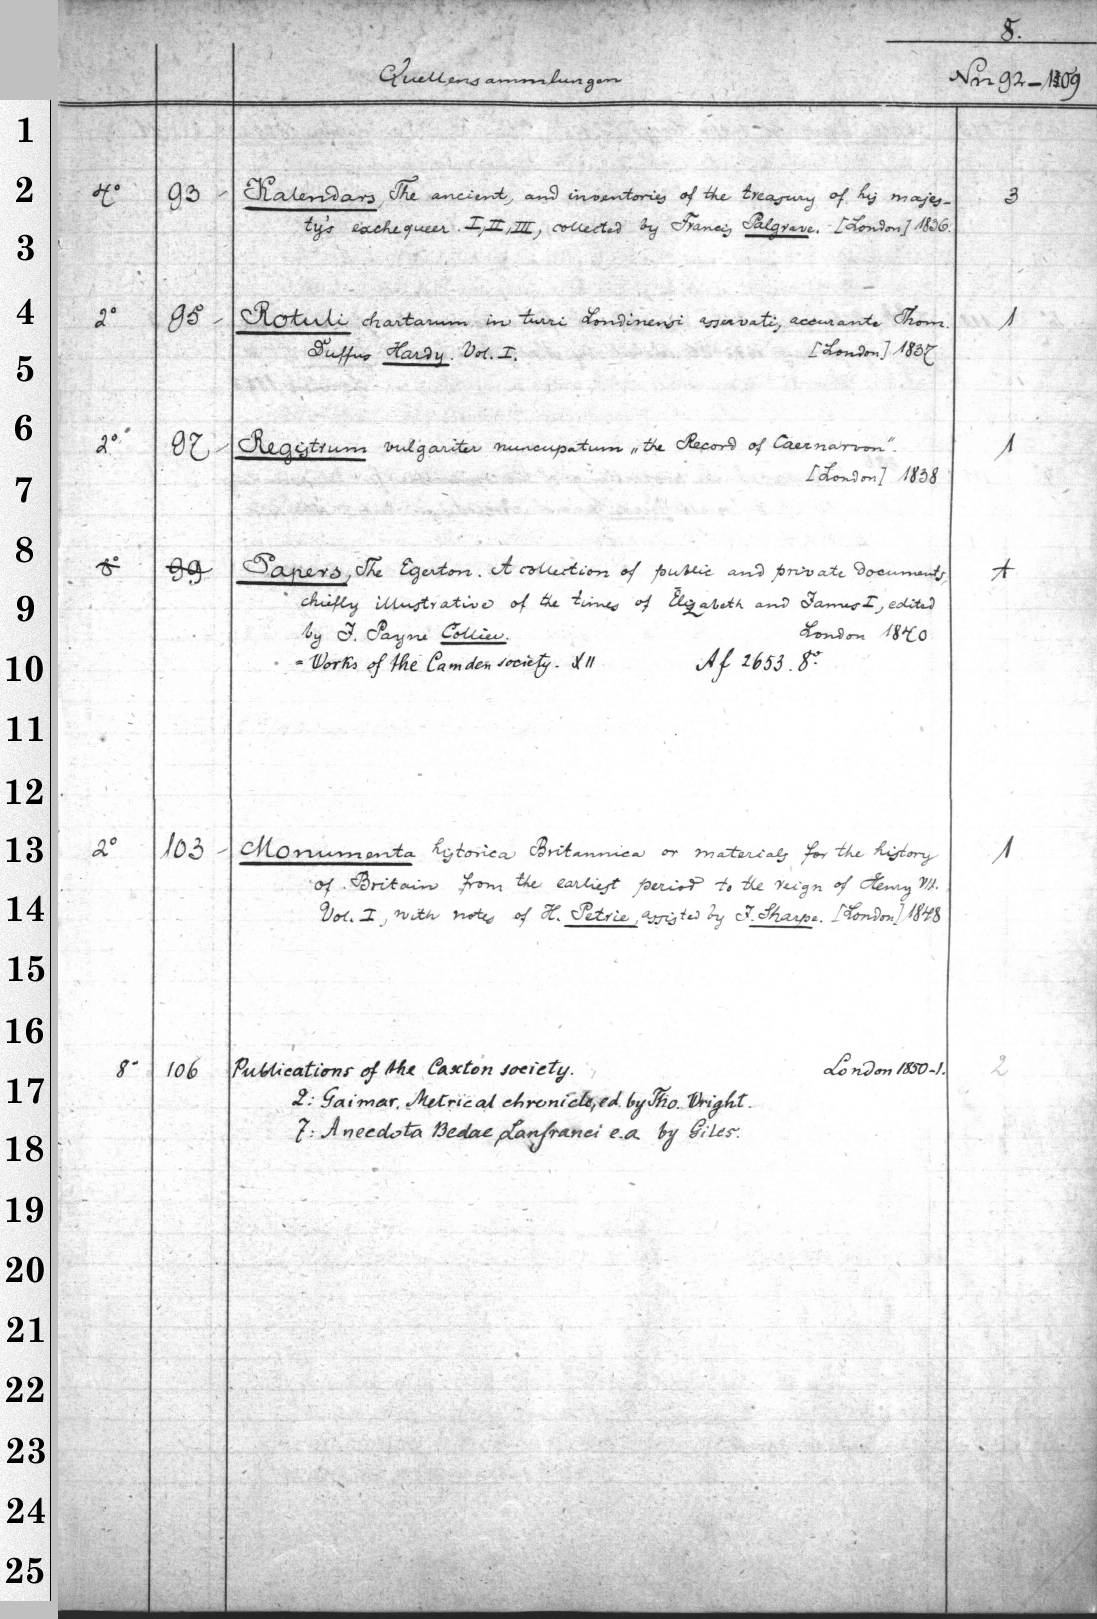 8.
Quellensammlungen Nrn 92-109
1
2 4° 93 - Kalendars, The ancient, and inventories of the treasury of his majes- 3
ty's exchequer. I, II, III, collected by Francis Palgrave. - [London] 1836.
3
4 2° 95 - Rotuli chartarum in turri Londinensi asservati, accurante Thom. 1
Duffus Hardy. Vol. I. [London] 1837
5
6 2° 97 - Registrum vulgariter nuncupatum „the Record of Caernarvon". 1
[London] 1838
7
8 8° 99 Papers, The Egerton. A collection of public and private documents, 1
9 chiefly illustrative of the times of Elizabeth and James I, edited
by J. Payne Collier. London 1840
10 = Works of the Camden society. XII Af 2653. 8°.
11
12
13 2° 103 - Monumenta historica Britannica or materials for the history 1
of Britain from the earliest period to the reign of Henry VII.
14 Vol. I, with notes of H. Petrie, assisted by J. Sharpe. [London] 1848
15
16
17 8° 106 Publications of the Caxton society. London 1850-1. 2
2: Gaimar, Metrical chronicle, ed. by Tho. Wright.
18 7: Anecdota Bedae, Lanfranci e.a. by Giles.
19
20
21
22
23
24
25